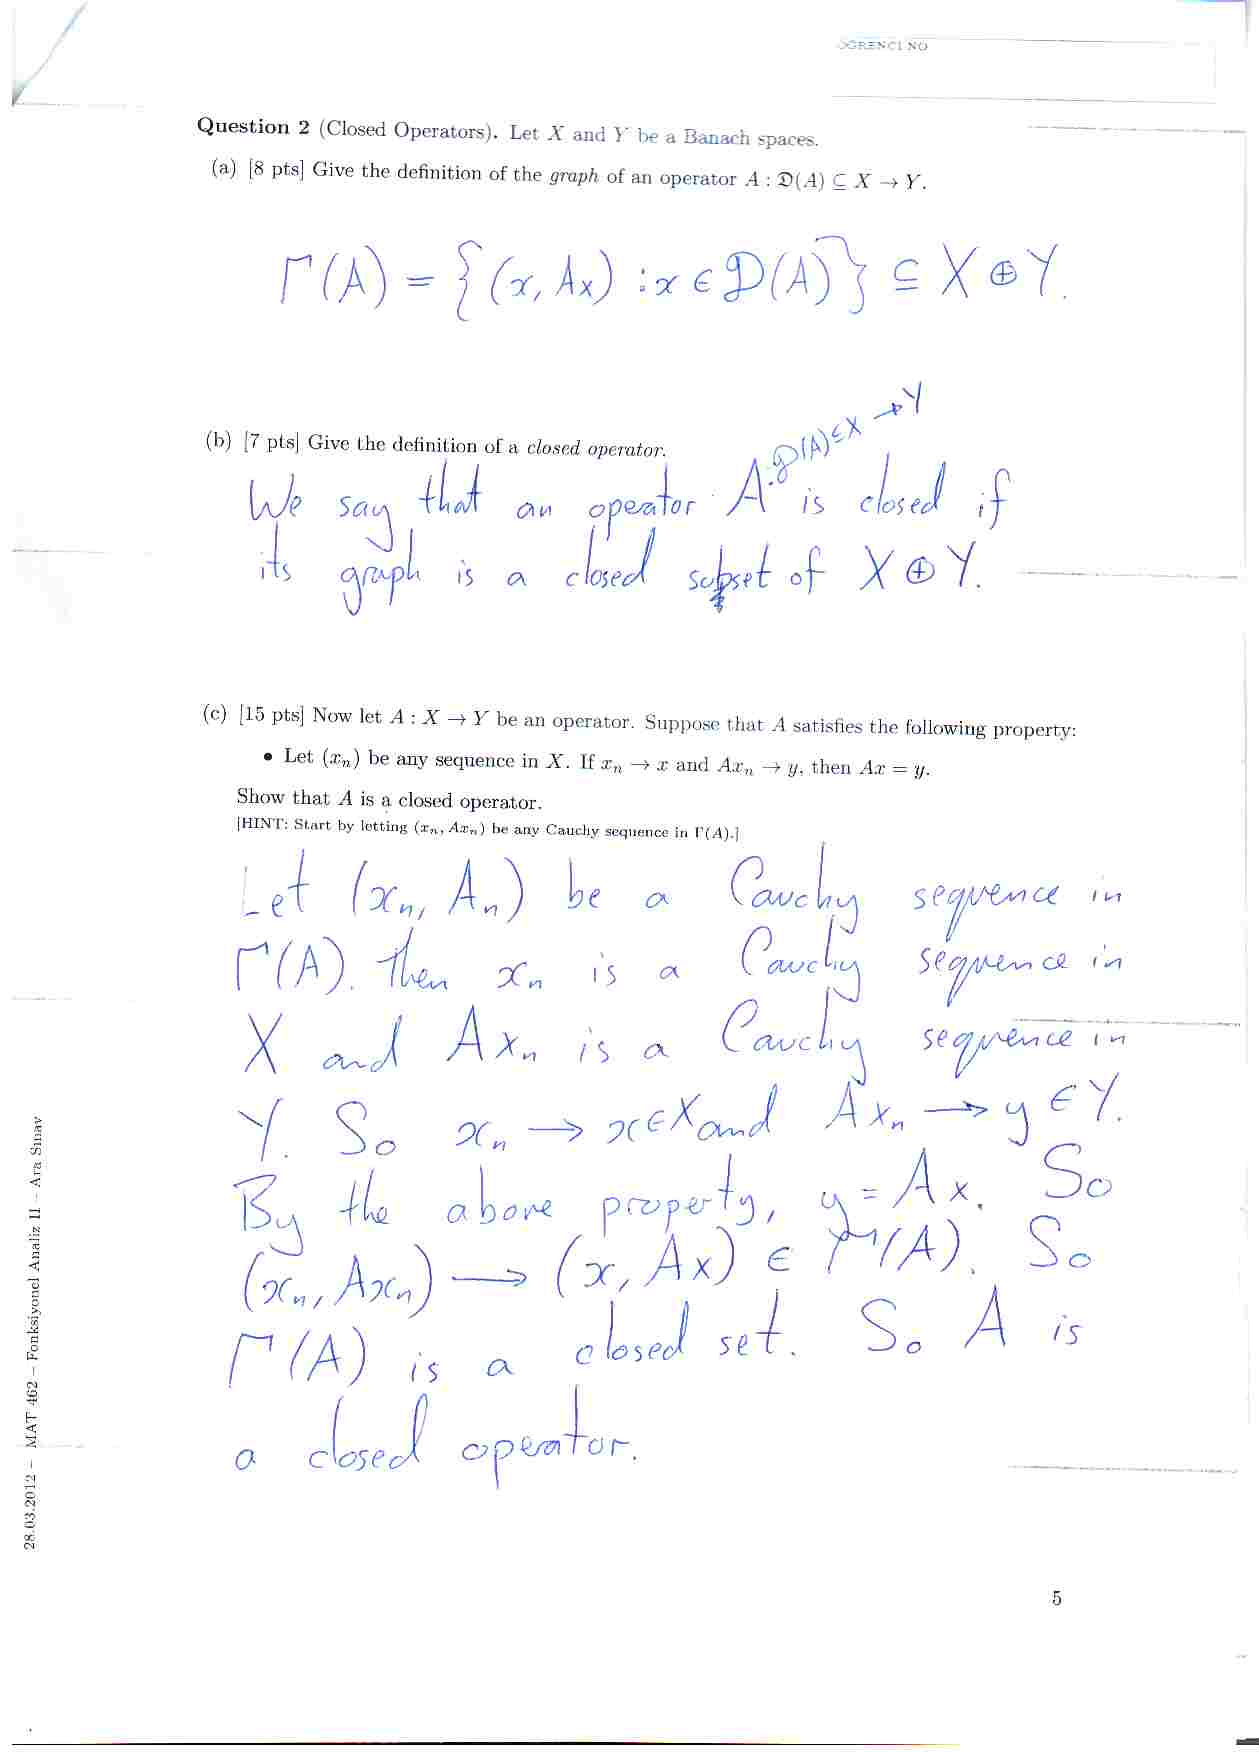 ÖĞRENCİ NO
Question 2 (Closed Operators). Let X and Y be a Banach spaces.
(a) [8 pts] Give the definition of the graph of an operator A : 𝔇(A) ⊆ X → Y.
Γ(A) = {(x, Ax) : x ∈ 𝒟(A)} ⊆ X ⊕ Y.
(b) [7 pts] Give the definition of a closed operator.
We say that an operator A: 𝒟(A) ⊆ X → Y is closed if
its graph is a closed subset of X ⊕ Y.
(c) [15 pts] Now let A : X → Y be an operator. Suppose that A satisfies the following property:
• Let (xₙ) be any sequence in X. If xₙ → x and Axₙ → y, then Ax = y.
Show that A is a closed operator.
[HINT: Start by letting (xₙ, Axₙ) be any Cauchy sequence in Γ(A).]
Let (xₙ, Aₙ) be a Cauchy sequence in
Γ(A). Then xₙ is a Cauchy sequence in
X and Axₙ is a Cauchy sequence in
Y. So xₙ → x ∈ X and Axₙ → y ∈ Y.
By the above property, y = Ax. So
(xₙ, Axₙ) → (x, Ax) ∈ Γ(A). So
Γ(A) is a closed set. So A is
a closed operator.
28.03.2012 – MAT 462 – Fonksiyonel Analiz II – Ara Sınav
5